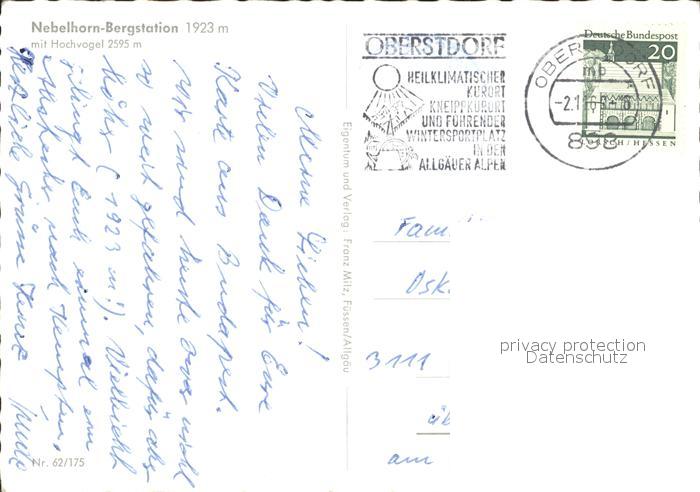 Nebelhorn-Bergstation 1923 m
mit Hochvogel 2595 m
Meine Lieben!
Vielen Dank für Eure
Karte aus Budapest.
Wir sind heute zwar nicht
so weit gefahren, dafür aber
höher (1923 m!). Vielleicht
gelingt Euch einmal ein
Abstecher nach Kempten.
Herzliche Grüsse
Nr. 62/175
Eigentum und Verlag: Franz Milz, Füssen/Allgäu
OBERSTDORF
HEILKLIMATISCHER
KURORT
KNEIPPKURORT
UND FÜHRENDER
WINTERSPORTPLATZ
IN DEN
ALLGÄUER ALPEN
OBERSTDORF
mb
898
Deutsche Bundespost
20
LORSCH/HESSEN
Fam
Osk
3111
üb
am
privacy protection
Datenschutz